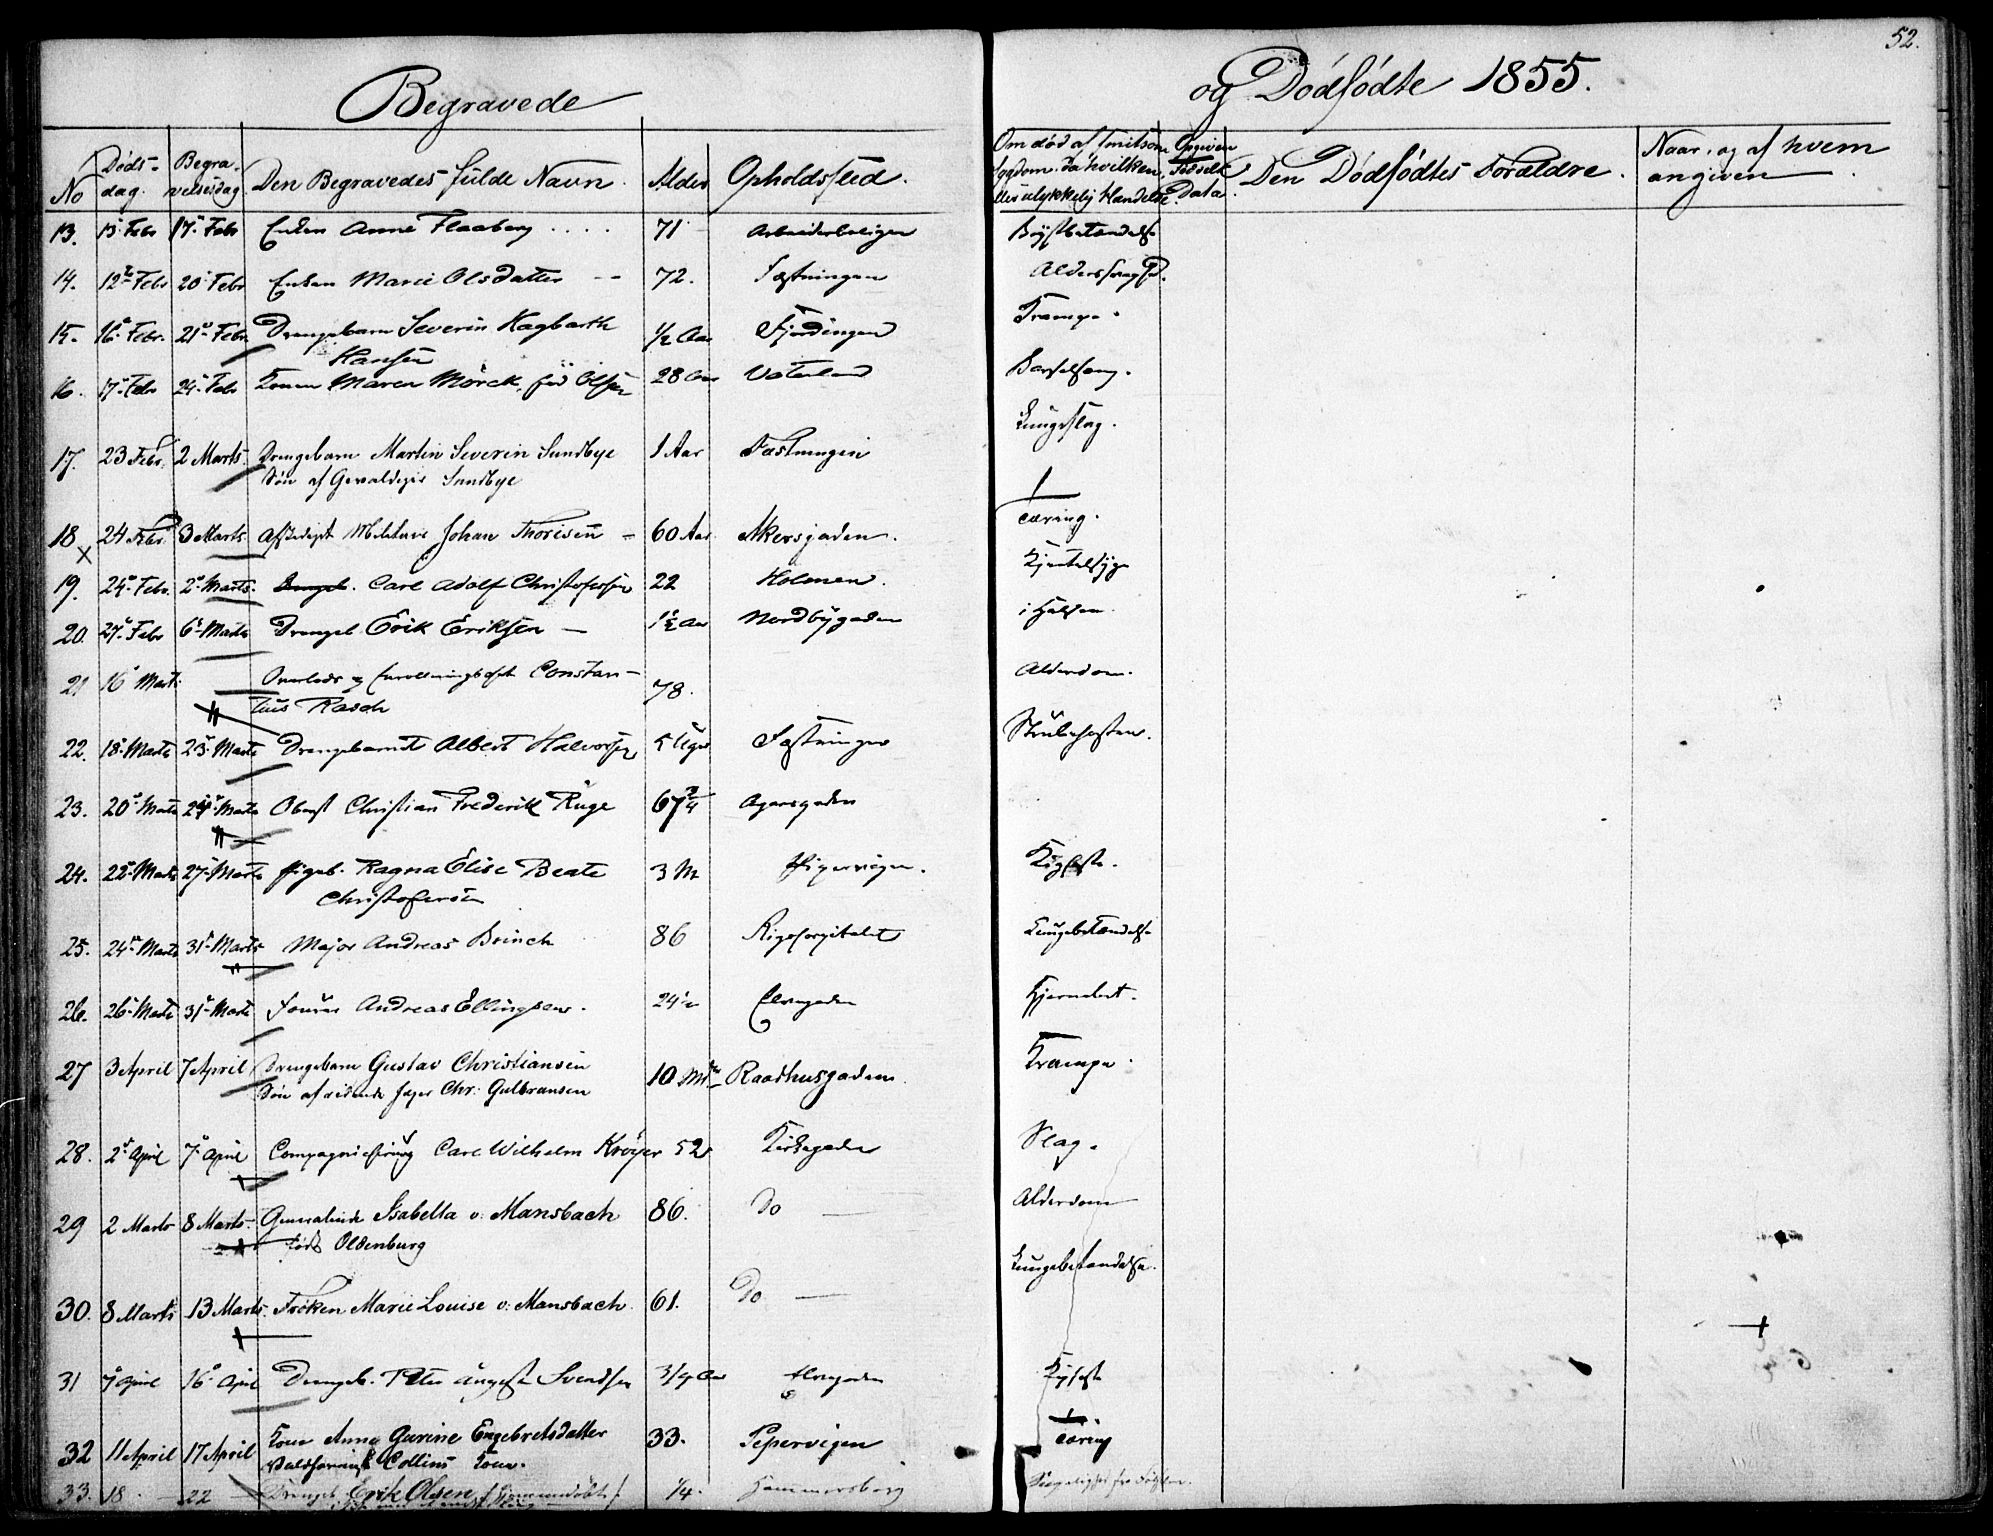 52.
Begravede
og Dödfödte 1855.
No
Döds-dag.
Begravelsesdag
Den Begravedes fulde Navn.
Alder
Opholdssted.
Om död af Smitsom Sygdom. Paa hvilken, eller ulykkelig Hændelse.
Opgiven Data.
Den Dödfödtes Forældre.
Naar, og af hvem angiven
13. 15 Febr 17 Febr Enken Anne Flaaberg 71 Arbeiderboligen Brystbetændelse
14. 12 Febr 20 Febr Enken Marie Olsdatter 72. Fæstningen
15. 16 Febr. 21 Febr. Drengebarn Severin Hagbarth ½ Aar Fjerdingen Krampe
Hansen
16. 17 Febr 24 Febr Konen Maren Mörck, föd Olsen 28 Aar Vaterland Barselseng.
17. 23 Febr. 2 Marts. Drengebarn Martin Severin Sundbye 1 Aar Fæstningen Lungeslag.
Sön af Gevaldiger Sundbye
18 24 Febr. 3 Marts Afskediget Militair Johan Thorisen 60 Aar Akersgaden. Tæring.
X
19. 24 Febr. 2 Marts. Carl Adolf Christofersen 22 Holmen.
20. 27 Febr 6 Marts Drengeb. Erik Eriksen 1½ Aar Nordbygaden i Halsen
21 16 Marts Constan-
tius Rasch 78. Alderdom.
22. 18 Marts 23 Marts Drengebarnet Albert Halvorsen 5 Uger Fæstningen Strubehosten.
23. 20 Marts 24 Marts Oberst Christian Frederik Ruge 67¾ Agersgaden
24. 22 Marts 27 Marts Pigeb. Ragna Elise Beate 3 M Pipervigen. Kighoste.
Christofersen
25. 24 Marts 31 Marts Major Andreas Brinch 86 Rigshospitalet Lungebetændelse
26. 26 Marts 31 Marts Fourer Andreas Ellingsen. 24½ Elvegaden
27 3 April 7 April Drengebarn Gustav Christiansen 10 Md Raadhusgaden. Krampe.
Sön af ridende Jæger Chr: Gulbransen
28. 2 April 7 April Carl Wilhelm Kröyer 52 Kirkegaden Slag.
29 2 Marts 8 Marts. Generalinde Isabella v: Mansbach 86. Do — Alderdom
född Oldenburg
30. 8 Marts 13 Marts. Fröken Marie Louise v: Mansbach. 61. Do — Lungebetændelse.
31 7 April 16 April Drengeb. Peter August Svendsen 3/4 Aar Elvegaden Kighoste
32 11 April 17 April Kone Anne Gurine Engebretsdatter 33. Pepervigen Tæring
Collins Kone.
33. 18 — 22 — Drengeb. Erik Olsen / hjemmedöbt / ¼. Hammersborg